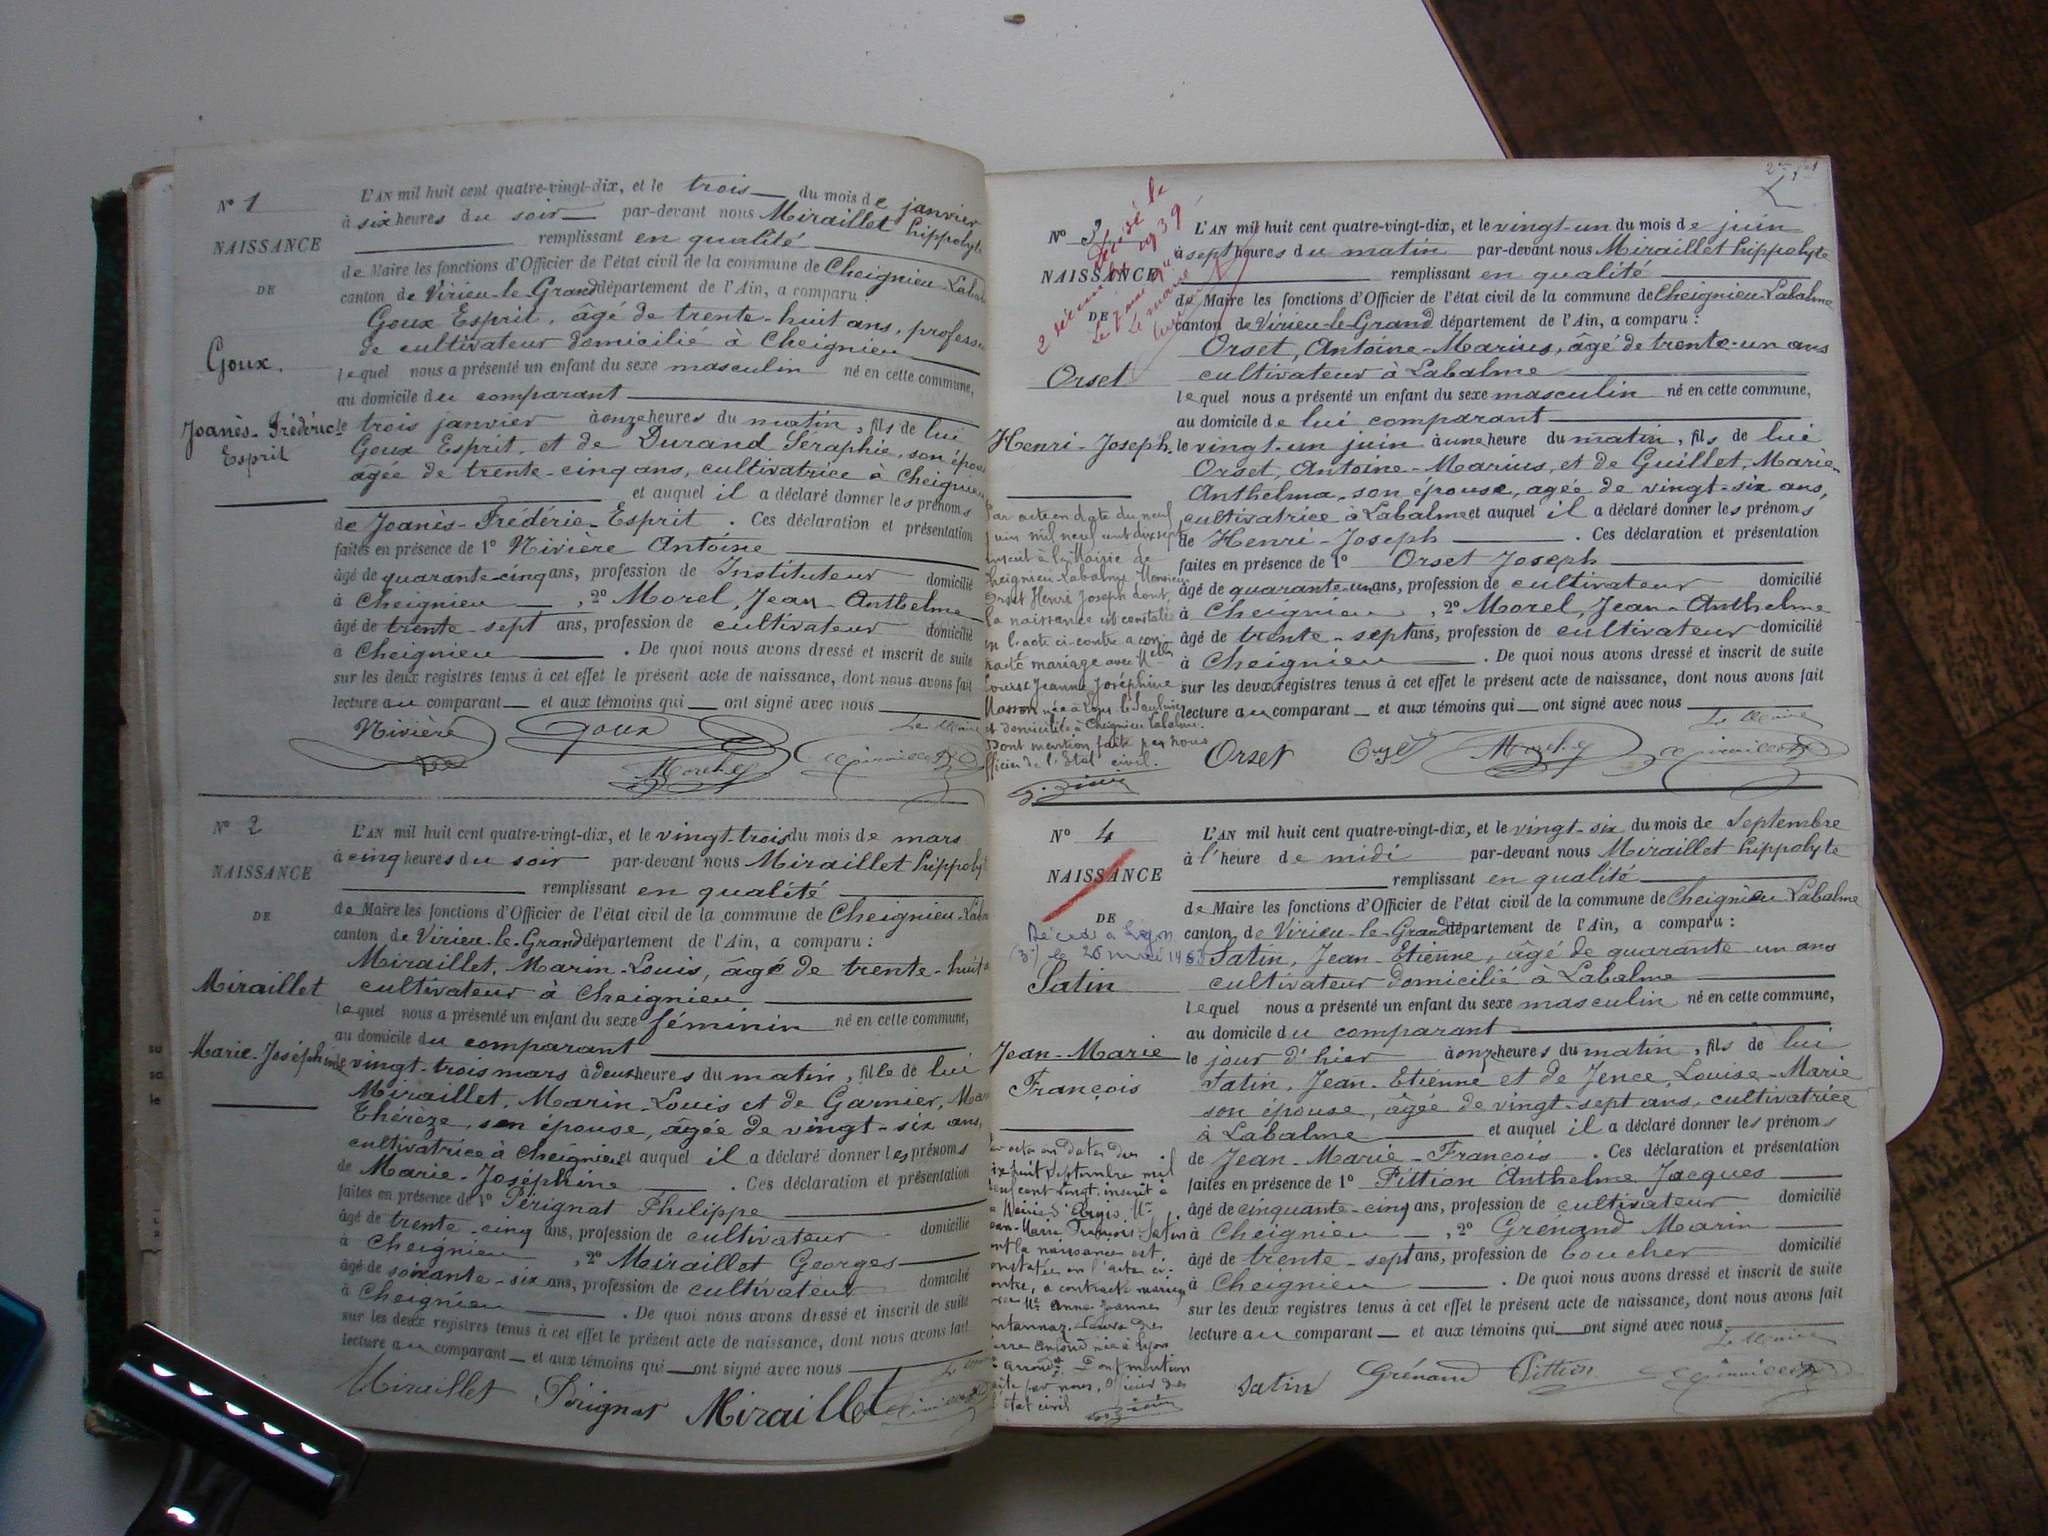 Nº 1
NAISSANCE
DE
Goux.
Joanès-Frédéric
Esprit
L'AN mil huit cent quatre-vingt-dix, et le trois du mois de janvier
à six heures du soir par-devant nous Miraillet hippolyte
remplissant en qualité
de Maire les fonctions d'Officier de l'état civil de la commune de Cheignieu-Labalme
canton de Virieu-le-Grand département de l'Ain, a comparu :
Goux Esprit, âgé de trente-huit ans, profession
de cultivateur domicilié à Cheignieu
lequel nous a présenté un enfant du sexe masculin né en cette commune,
au domicile du comparant
le trois janvier à onze heures du matin, fils de lui
Goux Esprit, et de Durand Séraphie, son épouse
âgée de trente-cinq ans, cultivatrice à Cheignieu
et auquel il a déclaré donner les prénoms
de Joanès-Frédéric-Esprit. Ces déclaration et présentation
faites en présence de 1º Nivière Antoine
âgé de quarante-cinq ans, profession de Instituteur domicilié
à Cheignieu, 2º Morel, Jean-Anthelme
âgé de trente-sept ans, profession de cultivateur domicilié
à Cheignieu. De quoi nous avons dressé et inscrit de suite
sur les deux registres tenus à cet effet le présent acte de naissance, dont nous avons fait
lecture au comparant et aux témoins qui ont signé avec nous
Nivière Goux Le Maire
Nº 2
NAISSANCE
DE
Miraillet
Marie-Joséphine
L'AN mil huit cent quatre-vingt-dix, et le vingt-trois du mois de mars
à cinq heures du soir par-devant nous Miraillet hippolyte
remplissant en qualité
de Maire les fonctions d'Officier de l'état civil de la commune de Cheignieu-Laba
canton de Virieu-le-Grand département de l'Ain, a comparu :
Miraillet, Marin-Louis, âgé de trente-huit a
cultivateur à Cheignieu
lequel nous a présenté un enfant du sexe féminin né en cette commune,
au domicile du comparant
le vingt-trois mars à deux heures du matin, fille de lui
Miraillet, Marin-Louis et de Garnier, Mar
Thérèze, son épouse, agée de vingt-six ans,
cultivatrice à Cheignieu et auquel il a déclaré donner les prénoms
de Marie-Joséphine. Ces déclaration et présentation
faites en présence de 1º Pérignat Philippe
âgé de trente-cinq ans, profession de cultivateur domicilié
à Cheignieu, 2º Miraillet Georges
âgé de soixante-six ans, profession de cultivateur domicilié
à Cheignieu. De quoi nous avons dressé et inscrit de suite
sur les deux registres tenus à cet effet le présent acte de naissance, dont nous avons fait
lecture au comparant et aux témoins qui ont signé avec nous
Miraillet Pérignat Miraillet
Nº 3
NAISSANCE
DE
Orset
Henri-Joseph.
1939
Le maire
L'AN mil huit cent quatre-vingt-dix, et le vingt-un du mois de juin
à sept heures du matin par-devant nous Miraillet hippolyte
remplissant en qualité
de Maire les fonctions d'Officier de l'état civil de la commune de Cheignieu-Labalme
canton de Virieu-le-Grand département de l'Ain, a comparu :
Orset, Antoine-Marius, âgé de trente-un ans
cultivateur à Labalme
lequel nous a présenté un enfant du sexe masculin né en cette commune,
au domicile de lui comparant
le vingt-un juin à une heure du matin, fils de lui
Orset, Antoine-Marius, et de Guillet, Marie-
Anthelma, son épouse, agée de vingt-six ans,
cultivatrice à Labalme et auquel il a déclaré donner les prénoms
de Henri-Joseph. Ces déclaration et présentation
faites en présence de 1º Orset Joseph
âgé de quarante-un ans, profession de cultivateur domicilié
à Cheignieu, 2º Morel, Jean-Anthelme
âgé de trente-sept ans, profession de cultivateur domicilié
à Cheignieu. De quoi nous avons dressé et inscrit de suite
sur les deux registres tenus à cet effet le présent acte de naissance, dont nous avons fait
lecture au comparant et aux témoins qui ont signé avec nous
Le Maire
Orset Orset
Par acte en date du neuf
juin mil neuf cent dix sept
inscrit à la Mairie de
Cheignieu-Labalme Monsieur
Orset Henri Joseph dont
la naissance est constatée
en l'acte ci-contre a con-
tracté mariage avec Melle
Louise Jeanne Joséphine
Masson née à Lons-le-Saulnier
et domiciliée à Cheignieu Labalme.
Dont mention faite par nous
officier de l'Etat civil.
Nº 4
NAISSANCE
DE
Décédé à Lyon
(3e) le 26 mai 1963
Satin
Jean-Marie
François
L'AN mil huit cent quatre-vingt-dix, et le vingt-six du mois de Septembre
à l'heure de midi par-devant nous Miraillet hippolyte
remplissant en qualité
de Maire les fonctions d'Officier de l'état civil de la commune de Cheignieu Labalme
canton de Virieu-le-Grand département de l'Ain, a comparu :
Satin, Jean-Etienne, âgé de quarante un ans
cultivateur domicilié à Labalme
lequel nous a présenté un enfant du sexe masculin né en cette commune,
au domicile du comparant
le jour d'hier à onze heures du matin, fils de lui
Satin, Jean-Etienne et de Jence, Louise-Marie
son épouse, âgée de vingt-sept ans, cultivatrice
à Labalme et auquel il a déclaré donner les prénoms
de Jean-Marie-François. Ces déclaration et présentation
faites en présence de 1º Pittion Anthelme Jacques
âgé de cinquante-cinq ans, profession de cultivateur domicilié
à Cheignieu, 2º Grénand Marin
âgé de trente-sept ans, profession de boucher domicilié
à Cheignieu. De quoi nous avons dressé et inscrit de suite
sur les deux registres tenus à cet effet le présent acte de naissance, dont nous avons fait
lecture au comparant et aux témoins qui ont signé avec nous
Le Maire
Satin Grénand Pittion
acte en date du
dix huit Septembre mil
neuf cent vingt inscrit à
la Mairie
Jean-Marie François Satin
dont la naissance est
constatée en l'acte ci-
contre, a contracté mariage
avec Anne Jeanne
veuve de
née à Lyon
arrondt. Dont mention
faite par nous, officier de
l'état civil